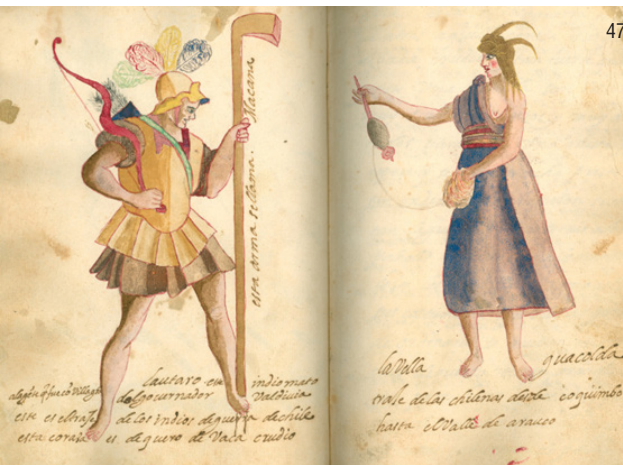 47
esta arma se llama. Macana
lautaro este indio mato
al governador Valdivia
este es el traje de los indios de guerra de chile
esta coraza es de quero de Vaca crudio
la Vella guacolda
traje de las chilenas desde coquimbo
hasta el Valle de arauco